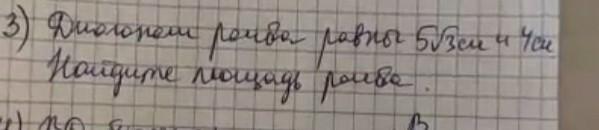 3) Диагонали ромба равны 5√3 см и 4 см
Найдите площадь ромба.
В